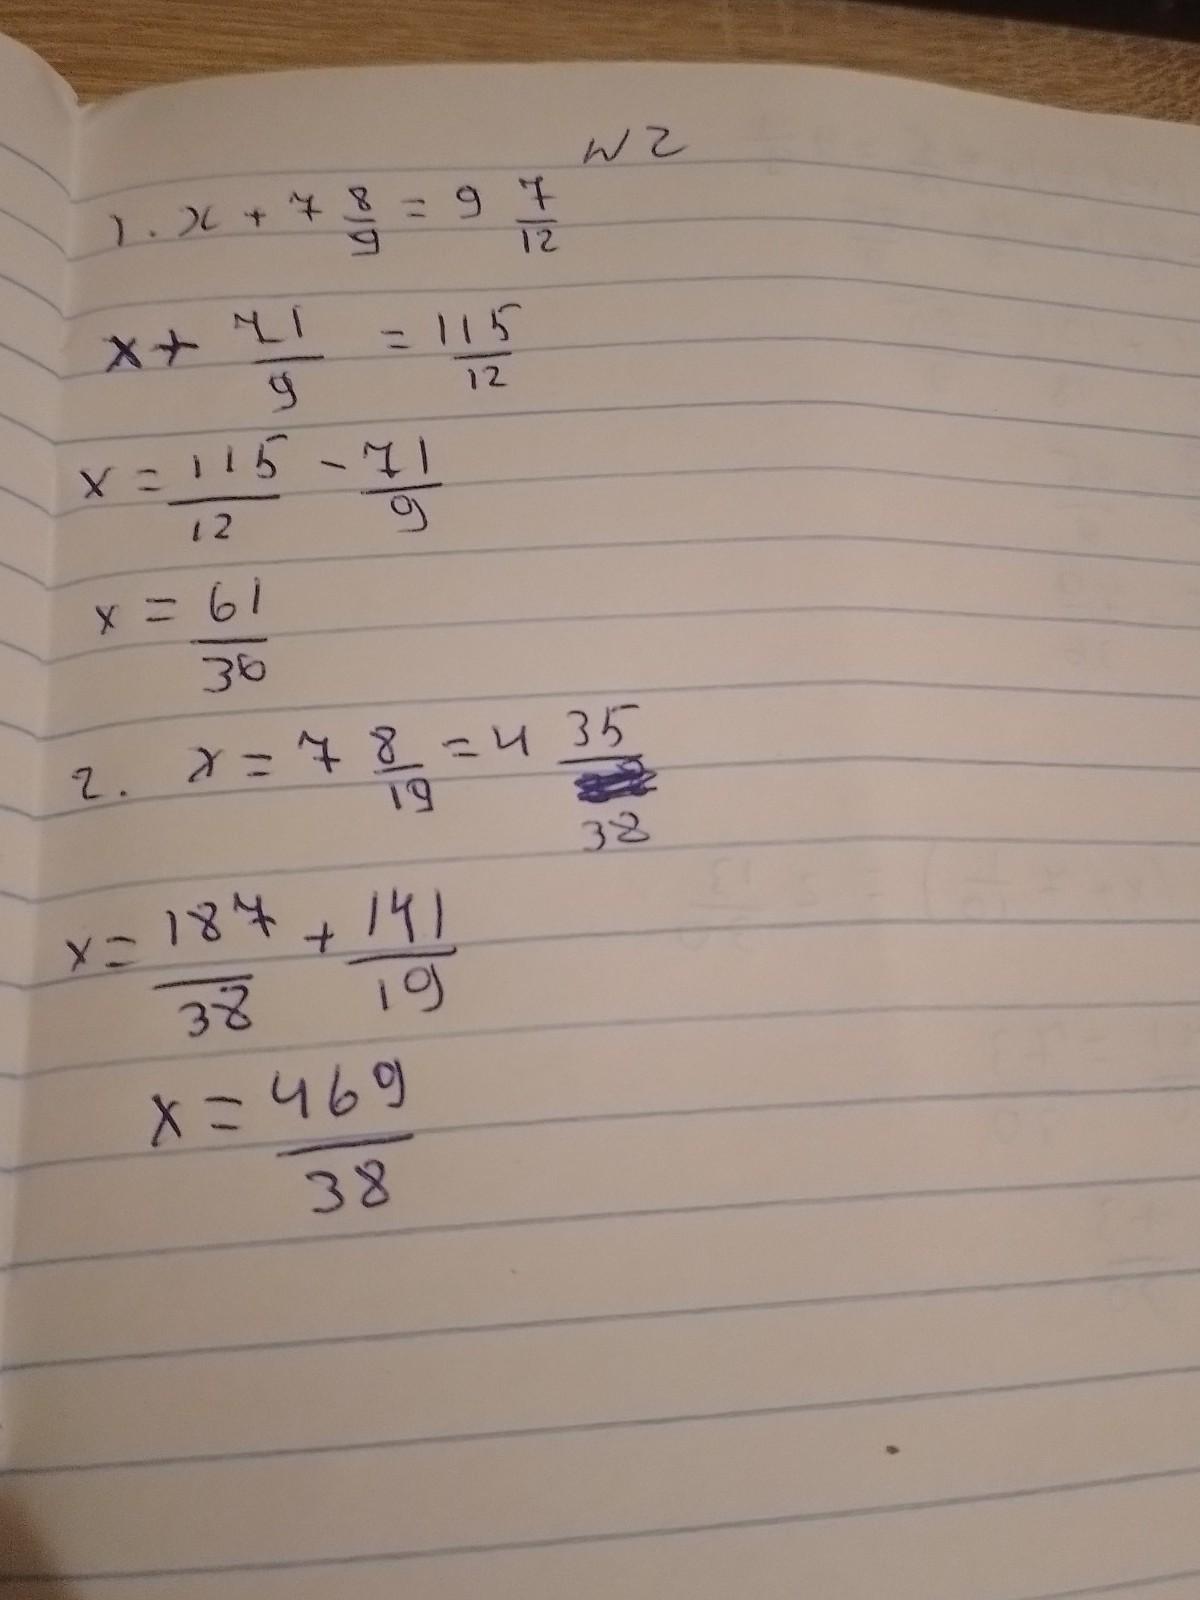 N2
1. x + 7 8/9 = 9 7/12
x + 71/9 = 115/12
x = 115/12 - 71/9
x = 61/36
2. x = 7 8/19 = 4 35/38
x = 187/38 + 141/19
x = 469/38